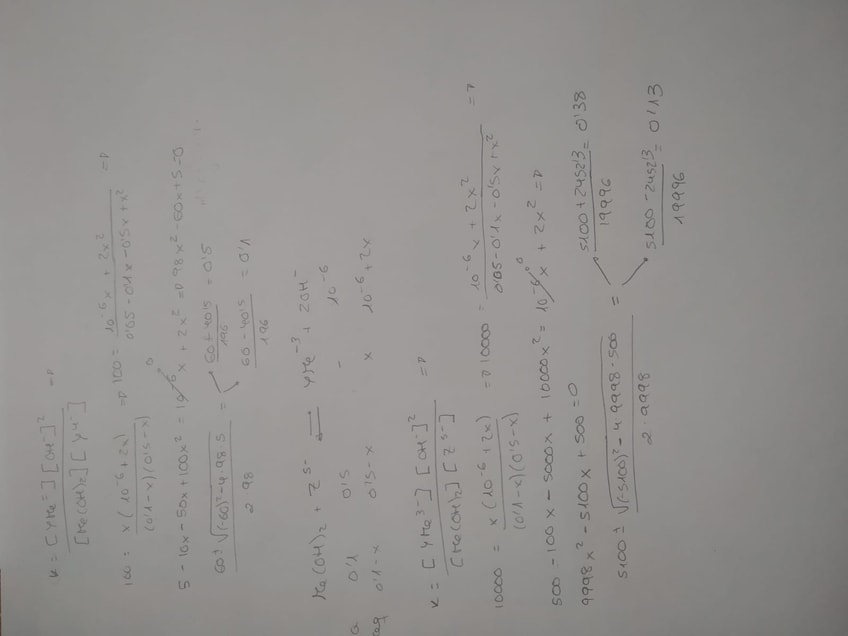 K = [YMe²⁻][OH⁻]² / [Me(OH)₂][Y⁴⁻] =>
100 = x(10⁻⁶+2x) / (0'1-x)(0'5-x) => 100 = 10⁻⁶x + 2x² / 0'05-0'1x-0'5x+x² =>
5 - 10x - 50x + 100x² = 10⁻⁶x + 2x² => 98x² - 60x + 5 = 0
60 ± √(-60)² - 4·98·5 / 2·98 = 60 + 40'5 / 196 = 0'5
60 - 40'5 / 196 = 0'1
Me(OH)₂ + Z⁵⁻ ⇌ YMe⁻³ + 2OH⁻
0'1 0'5 - 10⁻⁶
0'1-x 0'5-x x 10⁻⁶+2x
K = [YMe³⁻][OH⁻]² / [Me(OH)₂][Z⁵⁻] =>
10000 = x(10⁻⁶+2x) / (0'1-x)(0'5-x) => 10000 = 10⁻⁶x + 2x² / 0'05-0'1x-0'5x+x² =>
500 - 100x - 5000x + 10000x² = 10⁻⁶x + 2x² =>
9998x² - 5100x + 500 = 0
5100 ± √(-5100)² - 4·9998·500 / 2·9998 = 5100 + 2452'3 / 19996 = 0'38
5100 - 2452'3 / 19996 = 0'13